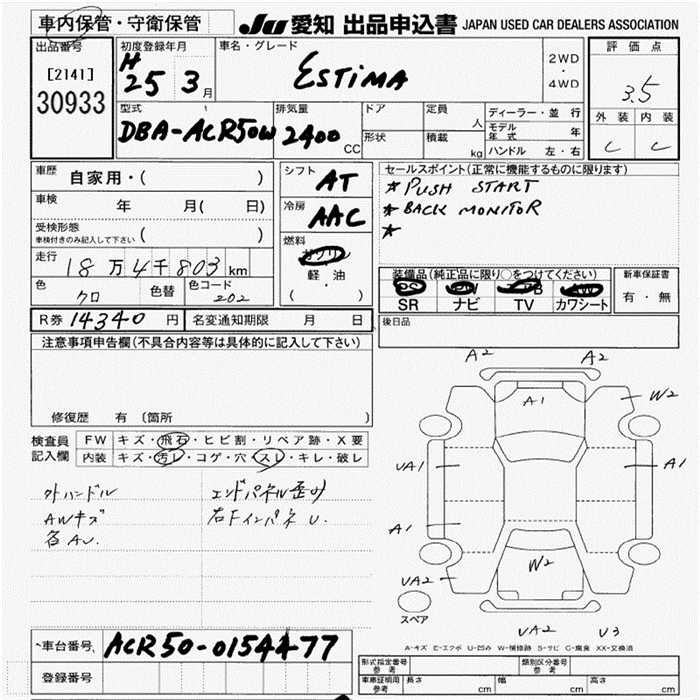 車内保管・守衛保管
JU 愛知 出品申込書 JAPAN USED CAR DEALERS ASSOCIATION
出品番号
[2141]
30933
初度登録年月
H
25 3 月
車名・グレード
ESTIMA
2WD
・
4WD
評価点
3.5
外装 内装
C C
型式
DBA-ACR50W
排気量
2400 CC
ドア
形状
定員 人
積載 kg
ディーラー・並行
モデル年式 年
ハンドル 左・右
車歴 自家用・( )
車検 年 月( 日)
受検形態
車検付きのみ記入して下さい ( )
走行 18万4千803km
色 クロ 色替 色コード 202
シフト AT
冷房 AAC
燃料
ガソリン
軽・油
( )
セールスポイント(正常に機能するものに限ります)
* PUSH START
* BACK MONITOR
*
装備品(純正品に限り○をつけてください)
PS PW AB AW
SR ナビ TV カワシート
新車保証書
有・無
後日品
R券 14340 円 名変通知期限 月 日
注意事項申告欄(不具合内容等は具体的に記入して下さい)
修復歴 有 〔箇所 〕
検査員記入欄
FW キズ・飛石・ヒビ割・リペア跡・X要
内装 キズ・汚レ・コゲ・穴・スレ・キレ・破レ
外ハンドル
AWキズ
各AU.
エンドパネル歪み
右Fインパネ U.
A2 A2
A1
W2
UA1
A1
A1
W2
UA2
スペア
UA2 U3
A-キズ E-エクボ U-凹み W-補修跡 S-サビ C-腐食 XX-交換済
車台番号 ACR50-0154477
登録番号
形式指定番号 参考
類別区分番号 参考
車庫証明用 参考
長さ cm 幅 cm 高さ cm